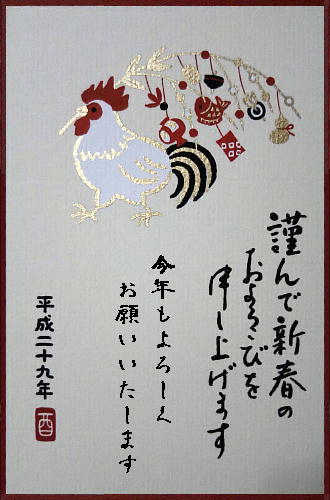 謹んで新春の
およろこびを
申し上げます
今年もよろしく
お願いいたします
平成二十九年
酉